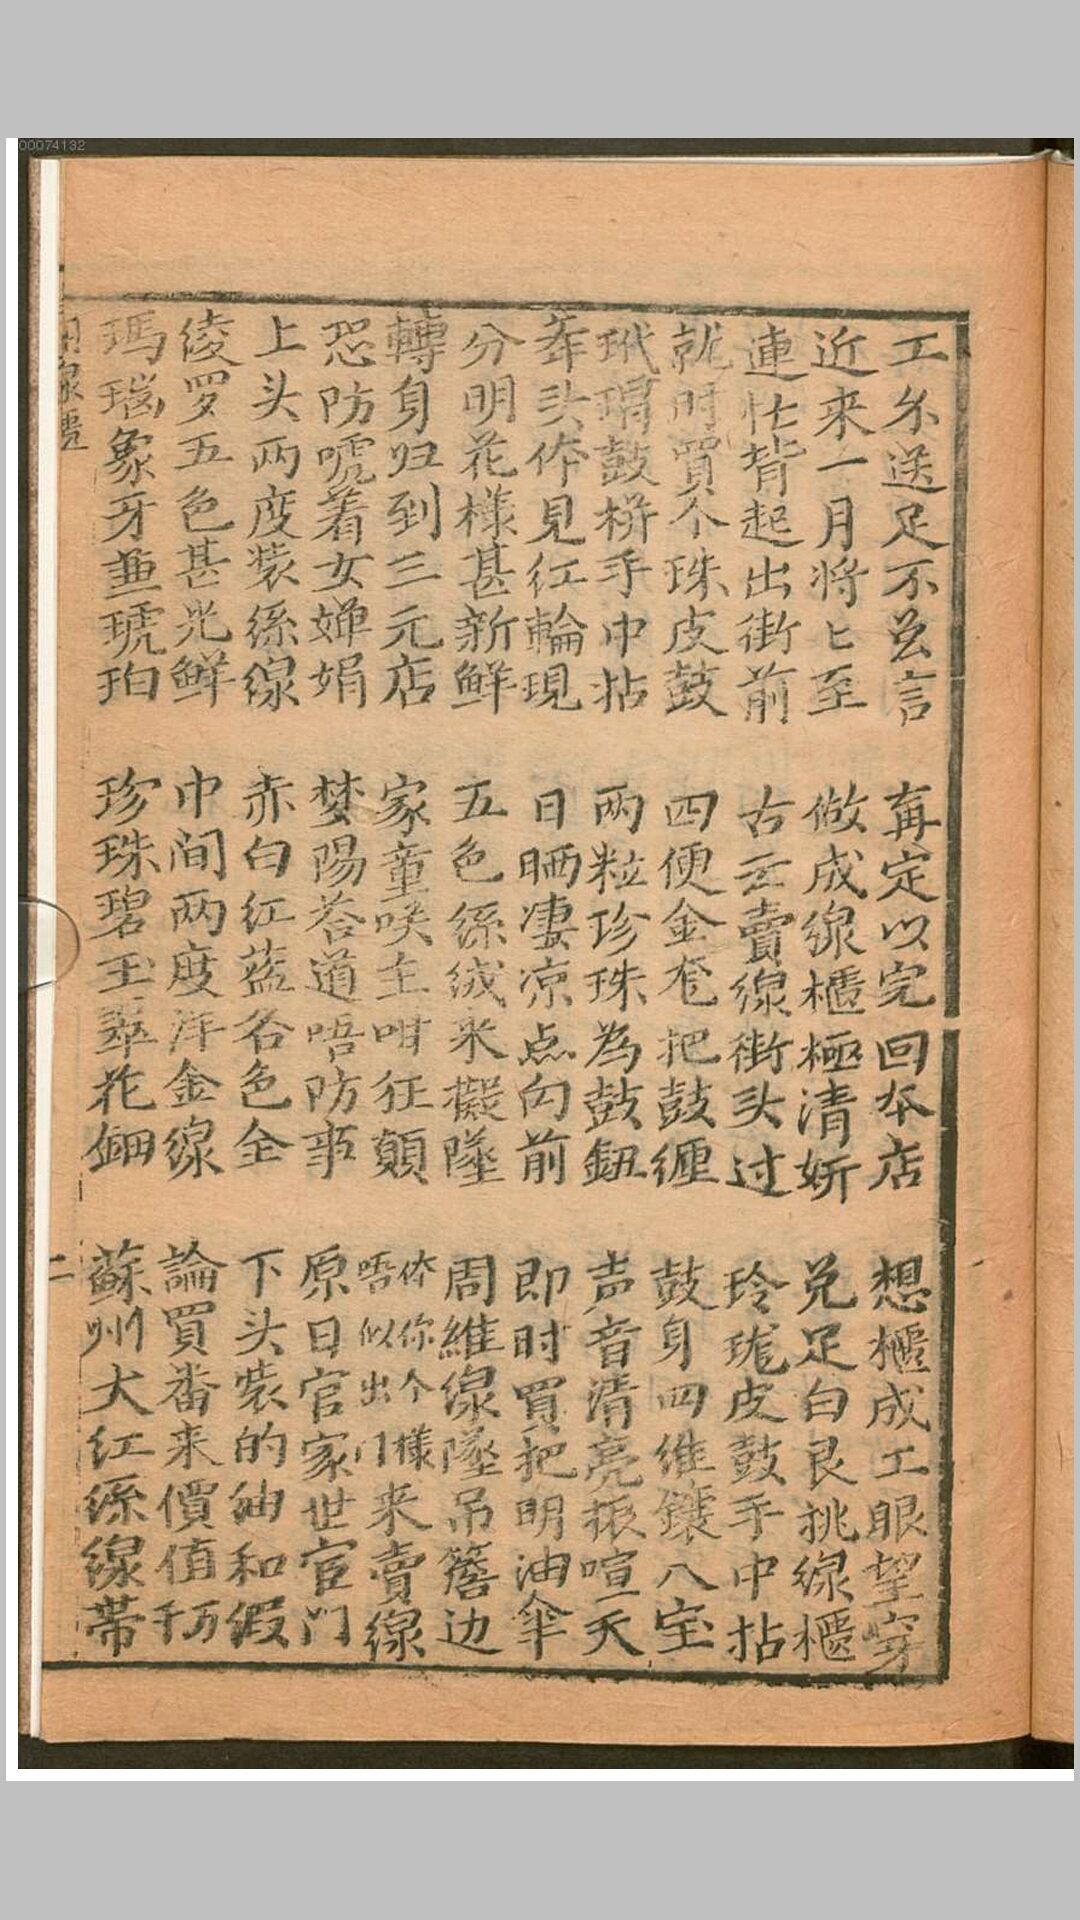 00074132
工糸送足不㕥言　再定以完回本店　想櫃成工眼望穿
近来一月将匕至　做成線櫃極清妍　兑足白艮挑線櫃
連忙背起出街前　古云賣線街头过　玲珑皮鼓手中拈
就时買个珠皮鼓　四便金 把鼓纒　鼓身四维鑲八宝
玳瑁鼓梹手巾拈　两粒珍珠為鼓鈕　声音清亮振喧天
奔头伓見红輪現　日晒凄凉点向前　即时買把明油傘
分明花樣甚新鮮　五色絲绒来擬墜　周維線墜吊簷边
轉身归到三元店　家童咲主咁狂顛　伓你个樣唔似出门来賣線
恐防唬着女婵娟　梦陽答道唔防事　原日官家世宦门
上头两度装絲線　赤白红蓝各色全　下头装的油和假
綾罗五色甚光鮮　巾间两度洋金線　論買番来價值千万
瑪瑙象牙兼琥珀　珍珠碧玉翠花鈿　蘇州大红絲線帯
二